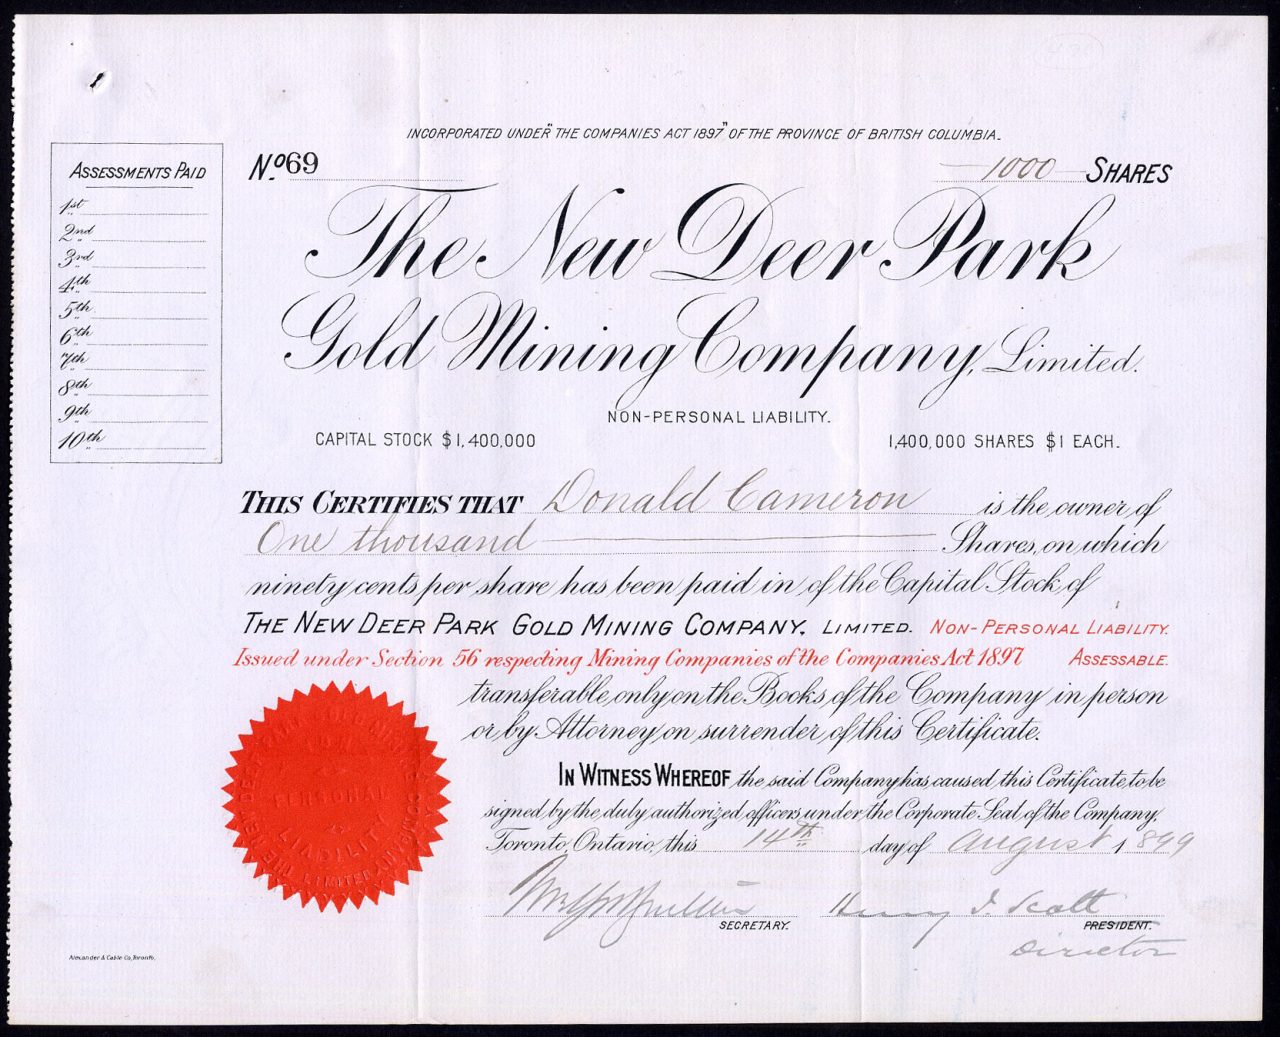 INCORPORATED UNDER "THE COMPANIES ACT 1897" OF THE PROVINCE OF BRITISH COLUMBIA.
ASSESSMENTS PAID
1st
2nd
3rd
4th
5th
6th
7th
8th
9th
10th
No. 69
1000 SHARES
The New Deer Park
Gold Mining Company, Limited.
NON-PERSONAL LIABILITY.
CAPITAL STOCK $1,400,000
1,400,000 SHARES $1 EACH.
THIS CERTIFIES THAT Donald Cameron is the owner of
One thousand Shares, on which
ninety cents per share has been paid in of the Capital Stock of
THE NEW DEER PARK GOLD MINING COMPANY, LIMITED. NON-PERSONAL LIABILITY.
Issued under Section 56 respecting Mining Companies of the Companies Act 1897 ASSESSABLE.
transferable only on the Books of the Company in person
or by Attorney on surrender of this Certificate.
IN WITNESS WHEREOF the said Company has caused this Certificate to be
signed by the duly authorized officers under the Corporate Seal of the Company,
Toronto, Ontario, this 14th day of August 1899
Henry J. Scott
SECRETARY.
PRESIDENT.
Director
THE NEW DEER PARK GOLD MINING COMPANY LIMITED
NON
PERSONAL
LIABILITY
Alexander & Cable Co, Toronto.